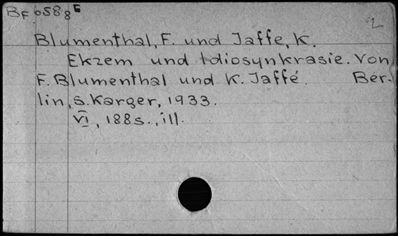 BF 0588 E
2
Blumenthal, F. und Jaffe, K.
Ekzem und Idiosynkrasie. Von
F. Blumenthal und K. Jaffé. Ber-
lin, S. Karger, 1933.
VI, 188s., ill.